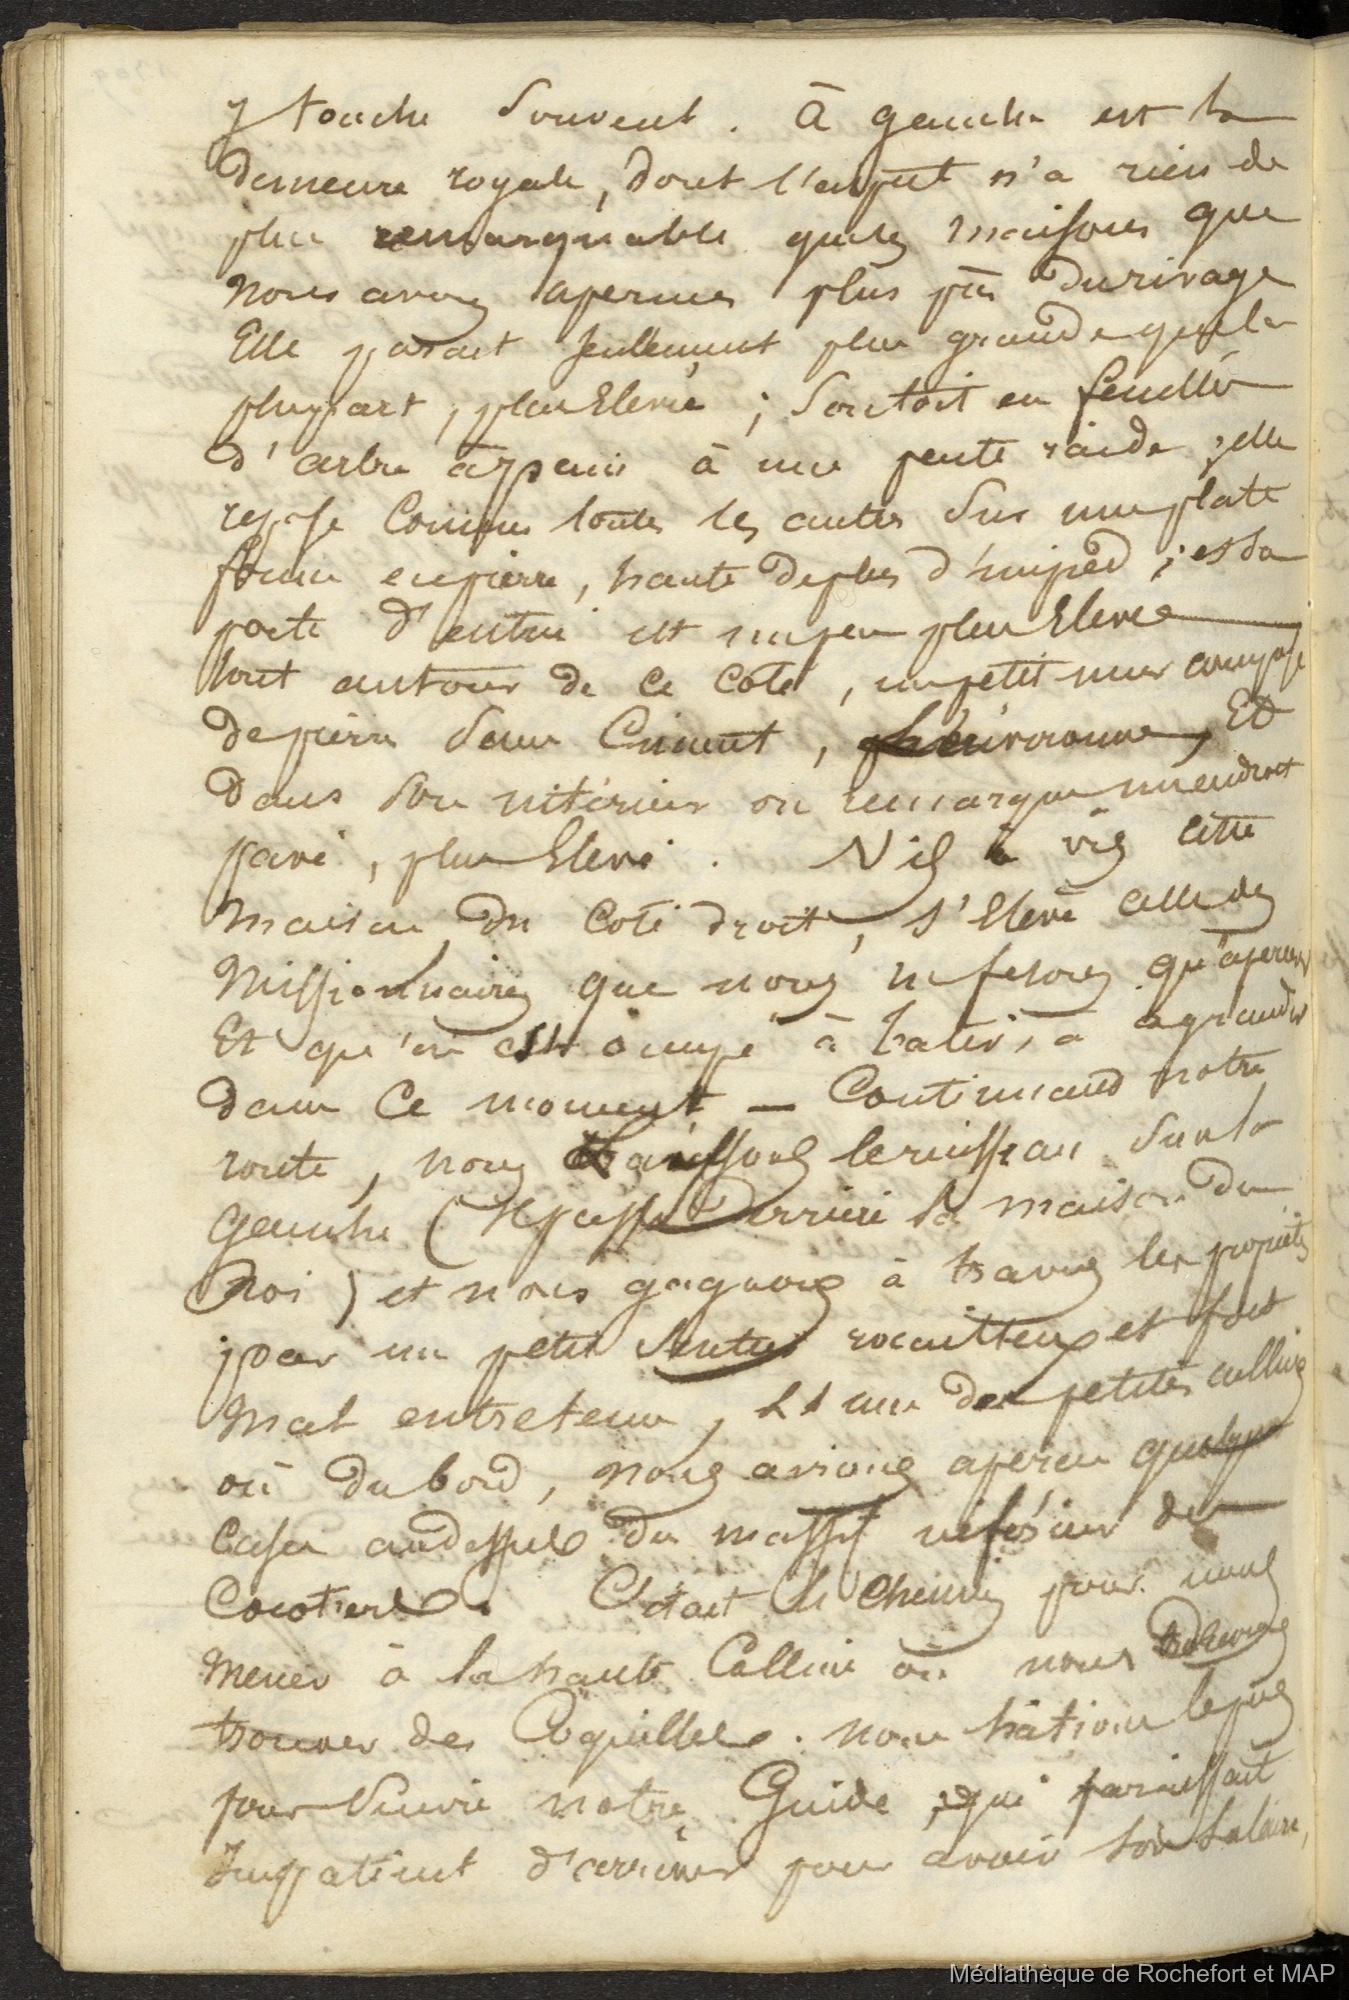 y touche souvent. à gauche est la
demeure royale, dont l'aspect n'a rien de
plus remarquable que les maisons que
nous avons aperçues plus près du rivage
Elle parait seulement plus grande que la
plupart, plus Elevée ; son toit en feuilles
d'arbre a une pente raide ; elle
repose Comme toutes les autres sur une plate
forme en pierre, haute de plus d'un pied ; et sa
porte d'entrée est un peu plus Elevée
tout autour de ce coté, un petit mur composé
de pierre sans Ciment, l'environne, Et
dans son intérieur on remarque un endroit
pavé, plus Elevé. Vis à vis cette
maison, du coté droit, s'Eleve celle des
Missionnaires que nous ne fesons qu'apercevoir
Et qu'on est occupé à batir, à agrandir
dans Ce moment — Continuant notre
route, nous laissons le ruisseau sur la
gauche (Il passe derriere la maison du
Roi) et nous gagnons à travers les propriétés
par un petit sentier rocailleux et fort
mal entretenu, une des petites collines
où du bord, nous avions aperçu quelques
Cases au dessus du massif inférieur des
Cocotiers. C'était le chemin pour nous
mener à la haute Colline où nous devions
trouver des Coquilles. nous hâtions le pas
pour suivre notre Guide, qui paraissait
Impatient d'arriver pour avoir son salaire,
Médiathèque de Rochefort et MAP